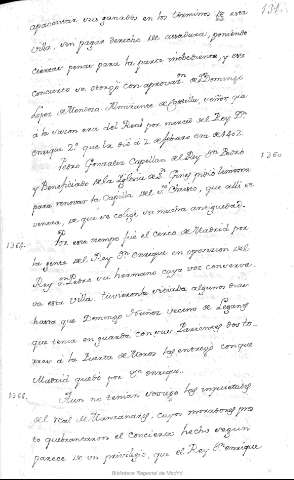 131.
apacentar sus ganados en los terminos de esta
villa, sin pagar derecho de asadura, poniendo
ciertas penas para la parte inobediente, y este
concierto se otorgó con aprovaz.on de Dn. Domingo
Lopez de Mendoza Almirante de Castilla, señor
á la sazon era del Real por merced del Rey Dn.
Enrique 2º que la dió á 2 de febrero era de 1402
1360
Pedro Gonzalez Capellan del Rey Dn. Pedro
y Beneficiado de la Iglesia de Sn. Gines pidió limosna
para renovar la Capilla del Sto. Christo, que allí se
venera, de que se colige su mucha antiguedad.
1369.
Por este tiempo fué el cerco de Madrid por
la gente del Rey Dn. Enrique en oposicion del
Rey Dn. Pedro su hermano cuya voz conserva-
va esta villa
hasta que Domingo Muñoz vecino de Leganes
que tenia en guarda con sus Parientes dos to-
rres á la Puerta de Moros las entregó conque
Madrid quedó por Dn. Enrique.
1366.
Aun no tenian sosiego las inquietudes
del Real de Manzanares, cuyos moradores pron-
to quebrantaron el concierto hecho segun
parece de un privilegio, que el Rey Dn. Enrique
Biblioteca Regional de Madrid